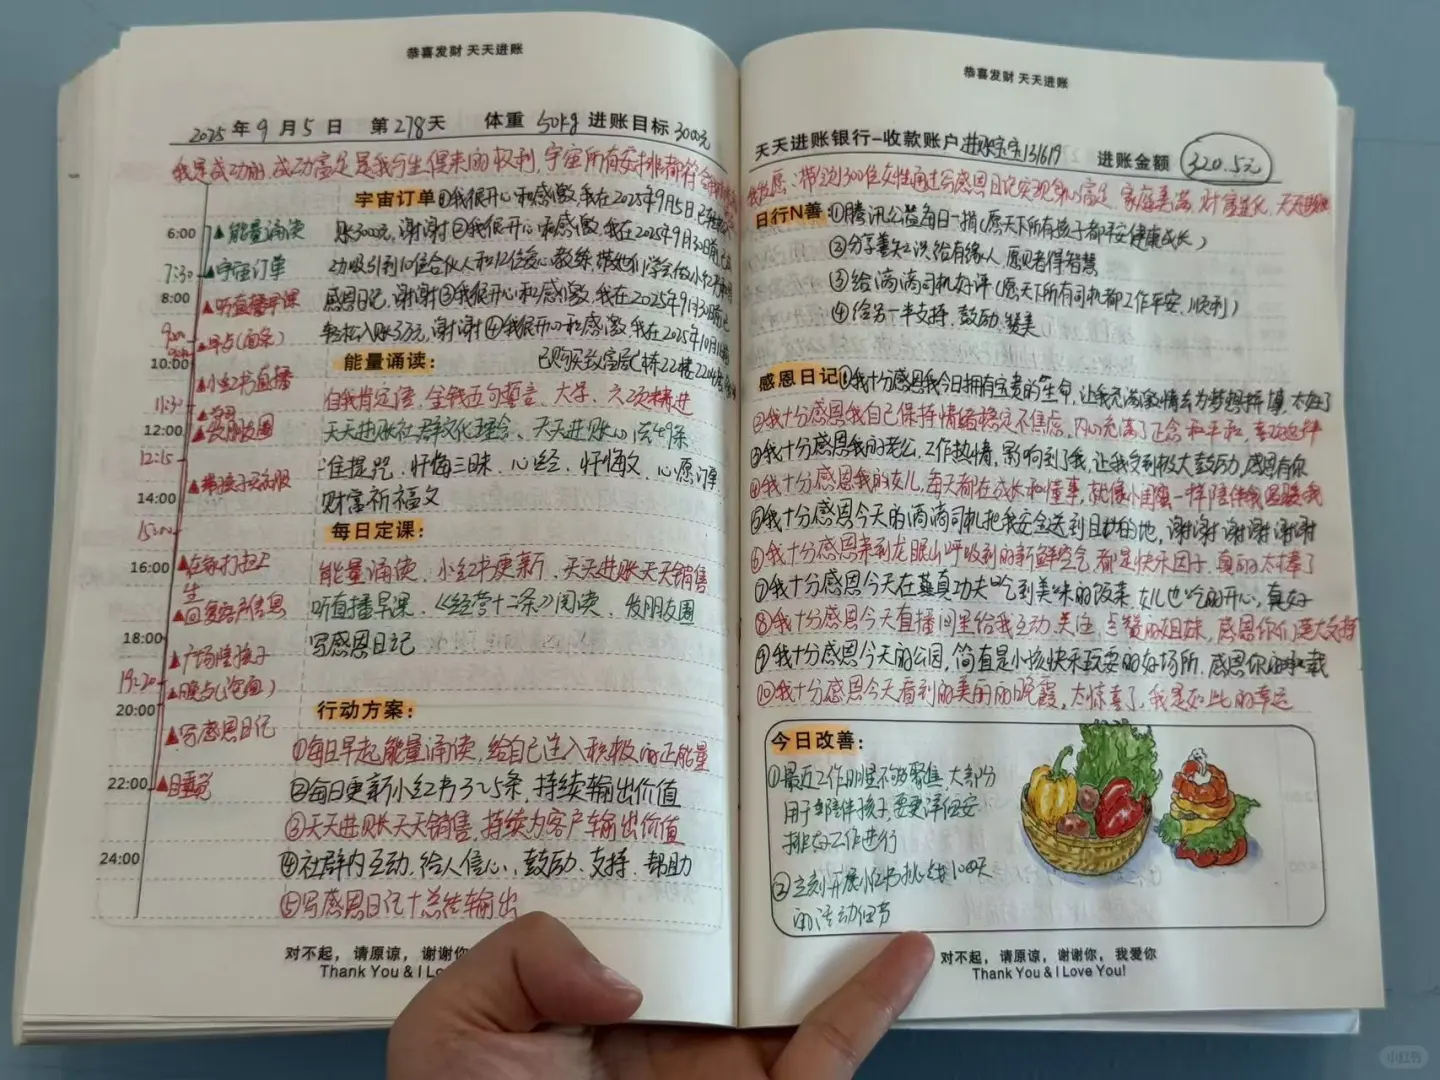 恭喜发财 天天进账
2025年9月5日 第278天 体重50kg 进账目标3000元
我是成功的,成功富足是我与生俱来的权利,宇宙所有安排都符合
宇宙订单①我很开心和感激,我在2025年9月5日已
6:00 ▲能量诵读 账3000元,谢谢②我很开心和感激,我在2025年9月30日前已
7:30 ▲宇宙订单 功吸引到10位合伙人和12位爱心教练,带她们学会做小红书和写
8:00 ▲听直播早课 感恩日记,谢谢③我很开心和感激,我在2025年9月30日前已
▲早点(面条) 轻松入账3万元,谢谢④我很开心和感激,我在2025年10月
10:00 能量诵读: 已购买 栋22楼
▲小红书直播 自我肯定语、金钱五句誓言、大学、六项精进
11:30
12:00 ▲发朋友圈 天天进账社群文化理念、天天进账心法49条
12:15 准提咒、忏悔三昧、心经、忏悔文、心愿订单
▲带孩子买衣服
14:00 财富祈福文
15:00 每日定课:
16:00 ▲在家打扫卫生 能量诵读、小红书更新、天天进账天天销售
▲回复客户信息 听直播早课、《经营十二条》阅读、发朋友圈
18:00 写感恩日记
▲广场陪孩子
19:20 ▲晚点(泡面)
20:00 行动方案:
▲写感恩日记 ①每日早起,能量诵读,给自己注入积极的正能量
22:00 ▲睡觉 ②每日更新小红书3~5条,持续输出价值
③天天进账天天销售,持续为客户输出价值
24:00 ④社群内互动、给人信心、鼓励、支持、帮助
⑤写感恩日记+总结输出
对不起,请原谅,谢谢你
Thank You & I Lo
恭喜发财 天天进账
天天进账银行-收款账户 进账宝宝131619 进账金额 320.5元
我发愿:带动300位女性通过写感恩日记实现身心富足、家庭美满、财富进化、天天进账
日行N善 ①腾讯公益每日一捐(愿天下所有孩子都平安健康成长)
②分享善知识给有缘人,愿见者得智慧
③给滴滴司机好评(愿天下所有司机都工作平安、顺利)
④给另一半支持、鼓励、赞美
感恩日记①我十分感恩我今日拥有宝贵的生命,让我充满激情去为梦想拼搏,太好了
②我十分感恩我自己保持情绪稳定不焦虑,内心充满了正念和平和,喜欢这样
③我十分感恩我的老公,工作热情,影响到了我,让我受到极大鼓励,感恩有你
④我十分感恩我的女儿,每天都在成长和懂事,就像小闺蜜一样陪伴我温暖我
⑤我十分感恩今天的滴滴司机把我安全送到目的地,谢谢谢谢谢谢
⑥我十分感恩来到龙眼山呼吸到的新鲜空气,都是快乐因子,真的太棒了
⑦我十分感恩今天在真功夫吃到美味的饭菜,女儿也吃的开心,真好
⑧我十分感恩今天直播间里给我互动、关注、点赞的姐妹,感恩你们莫大支持
⑨我十分感恩今天的公园,简直是小孩快乐玩耍的好场所,感恩你的承载
⑩我十分感恩今天看到的美丽的晚霞,太惊喜了,我是如此的幸运
今日改善:
①最近工作明显不够聚焦,大部分
用于陪伴孩子,需要详细安
排好工作进行
②立刻开展小红书 100天
的活动细节
对不起,请原谅,谢谢你,我爱你
Thank You & I Love You!
小红书